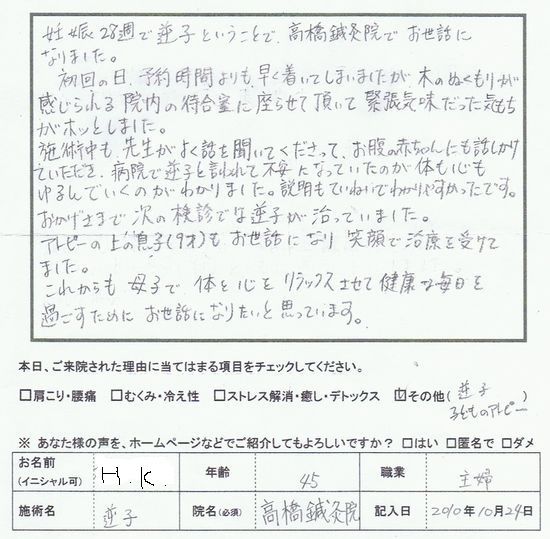 妊娠28週で逆子ということで、高橋鍼灸院でお世話に
なりました。
初回の日、予約時間よりも早く着いてしまいましたが木のぬくもりが
感じられる院内の待合室に座らせて頂いて緊張気味だった気もち
がホッとしました。
施術中も、先生がよく話を聞いてくださって、お腹の赤ちゃんにも話しかけ
ていただき、病院で逆子と言われて不安になっていたのが体も心も
ゆるんでいくのがわかりました。説明もていねいでわかりやすかったです。
おかげさまで次の検診では逆子が治っていました。
アトピーの上の息子(9才)もお世話になり笑顔で治療を受けて
ました。
これからも母子で体と心をリラックスさせて健康な毎日を
過ごすためにお世話になりたいと思っています。
本日、ご来院された理由に当てはまる項目をチェックしてください。
□肩こり・腰痛 □むくみ・冷え性 □ストレス解消・癒し・デトックス ☑その他(逆子
子どものアトピー)
※ あなた様の声を、ホームページなどでご紹介してもよろしいですか? □はい □匿名で □ダメ
お名前 (イニシャル可) H.K. 年齢 45 職業 主婦
施術名 逆子 院名(必須) 高橋鍼灸院 記入日 2010年10月29日